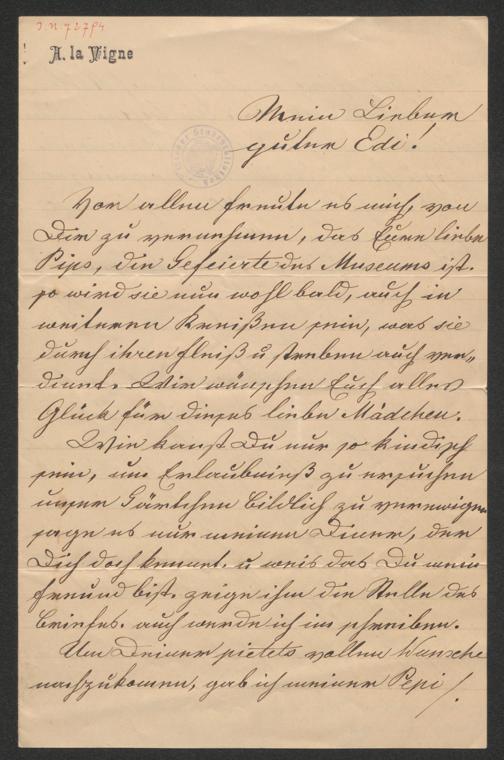 J.N. 72794
A. la Vigne
Mein Lieber
guter Edi!
Vor allem freute es mich, von
Dir zu vernehmen, das Eure liebe
Pips, die Gefeierte des Museums ist.
so wird sie nun wohl bald, auch in
weiteren Kreißen sein, was sie
durch ihren Fleiß u streben auch ver„
dient. Wir wünschen Euch alles
Glück für dieses liebe Mädchen.
Wie kanst Du nur so kindisch
sein, um Erlaubniß zu ersuchen
unser Gärtchen bildlich zu verewigen
sage es nur meinem Diener, der
Dich doch kennt. u weis das Du mein
Freund bist. zeige ihm die Stelle des
Briefes. auch werde ich im schreiben.
Um Deinem pietets vollen Wunsche
nachzukomen, gab ich meiner Pepi /.